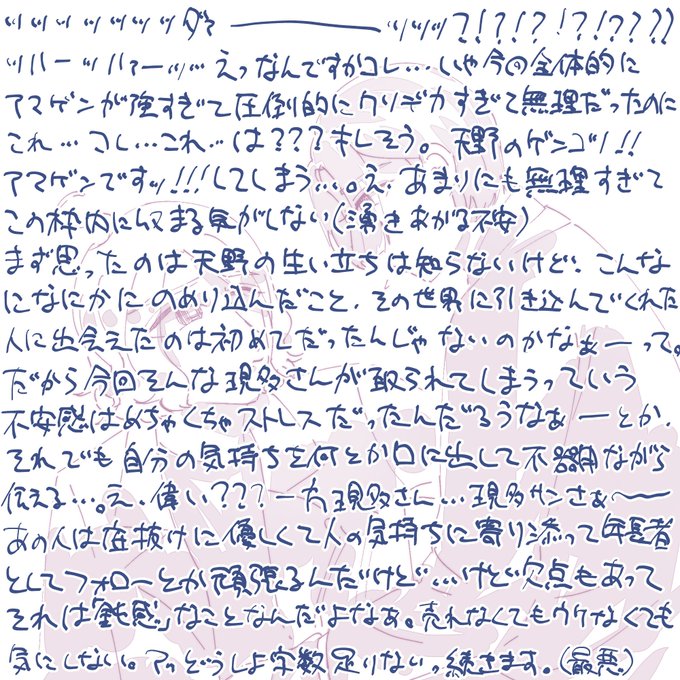 ッッッッッッッダァ――――ッッッ?!?!?!?!???
ッハーッハァーッッッえっなんですかコレ…いや今回全体的に
アマゲンが強すぎて圧倒的にクリギカすぎて無理だったのに
これ…コレ…これ…は???キしそう。天野のゲンゴツ!!
アマゲンですッ!!!してしまう…。え、あまりにも無理すぎて
この枠内に収まる気がしない(湧きあがる不安)
まず思ったのは天野の生い立ちは知らないけど、こんな
になにかにのめり込んだこと、その世界に引き込んでくれた
人に出会えたのは初めてだったんじゃないのかなぁーって。
だから今回そんな現多さんが取られてしまうっていう
不安感はめちゃくちゃストレスだったんだろうなぁーとか、
それでも自分の気持ちを何とか口に出して不器用ながら
伝える…。え、偉い???一方現多さん…現多サンさぁ〜
あの人は底抜けに優しくて人の気持ちに寄り添って年長者
としてフォローとか頑張るんだけど…けど欠点もあって
それは「鈍感」なことなんだよなぁ。売れなくてもウケなくても
気にしない。アッどうしよ字数足りないっ続きます。(最悪)